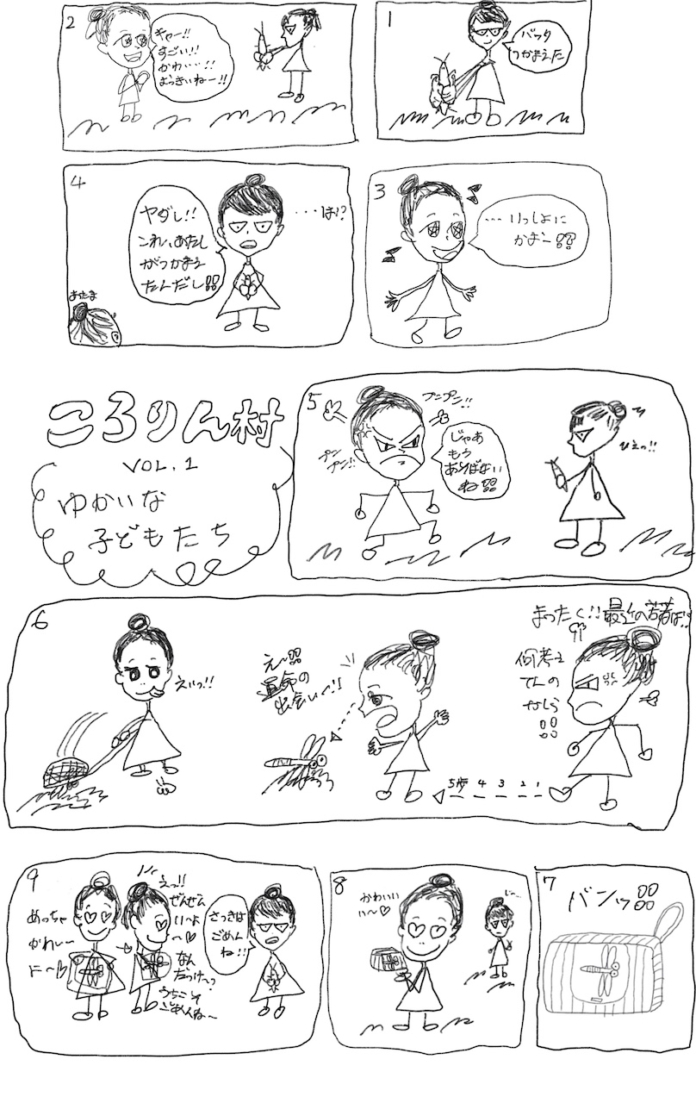 1
バッタ
つかまえた
2
キャー!!
すごい!!
かわいい!!
おっきいねー!!
3
…いっしょに
かおー??
4
ヤダし!!
これ、あたし
がつかまえ
たんだし!!
…は!?
あたま
ころりん村
VOL.1
ゆかいな
子どもたち
5
プンプン!!
プン
プン!!
じゃあ
もう
あそばない
ね!!
ひえっ!!
6
まったく!!最近の若者は!!
何考え
てんの
かしら
5歩 4 3 2 1
え〜!!
運命の
出会い〜!!
えいっ!!
7
バンッ!!
8
かわいい
い〜♡
じー…
9
さっきは
ごめん
ね!!
えっ!!
ぜんぜん
いーよ
〜♡
なん
だっけ〜?
うちこそ
ごめんね〜
めっちゃ
かわい〜
に〜♡